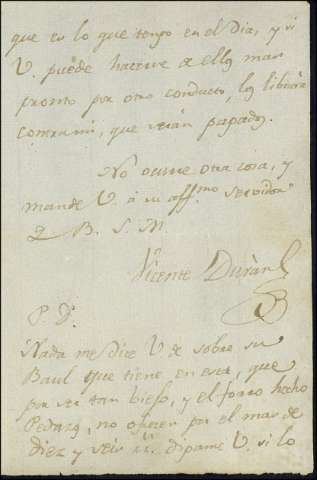 que es lo que tengo en el dia, y si
V. puede hacerse de ellos mas
pronto por otro conducto, los librará
contra mi, que serán pagados.
No ocurre otra cosa, y
mande V. á su aff.mo servidor
Q. B. S. M.
Vicente Durán
P. D.
Nada me dice V. de sobre su
Baul que tiene en esta, que
por ser tan biejo, y el forro hecho
Pedazos, no ofrecen por el mas de
diez y seis rs. digame V. si lo